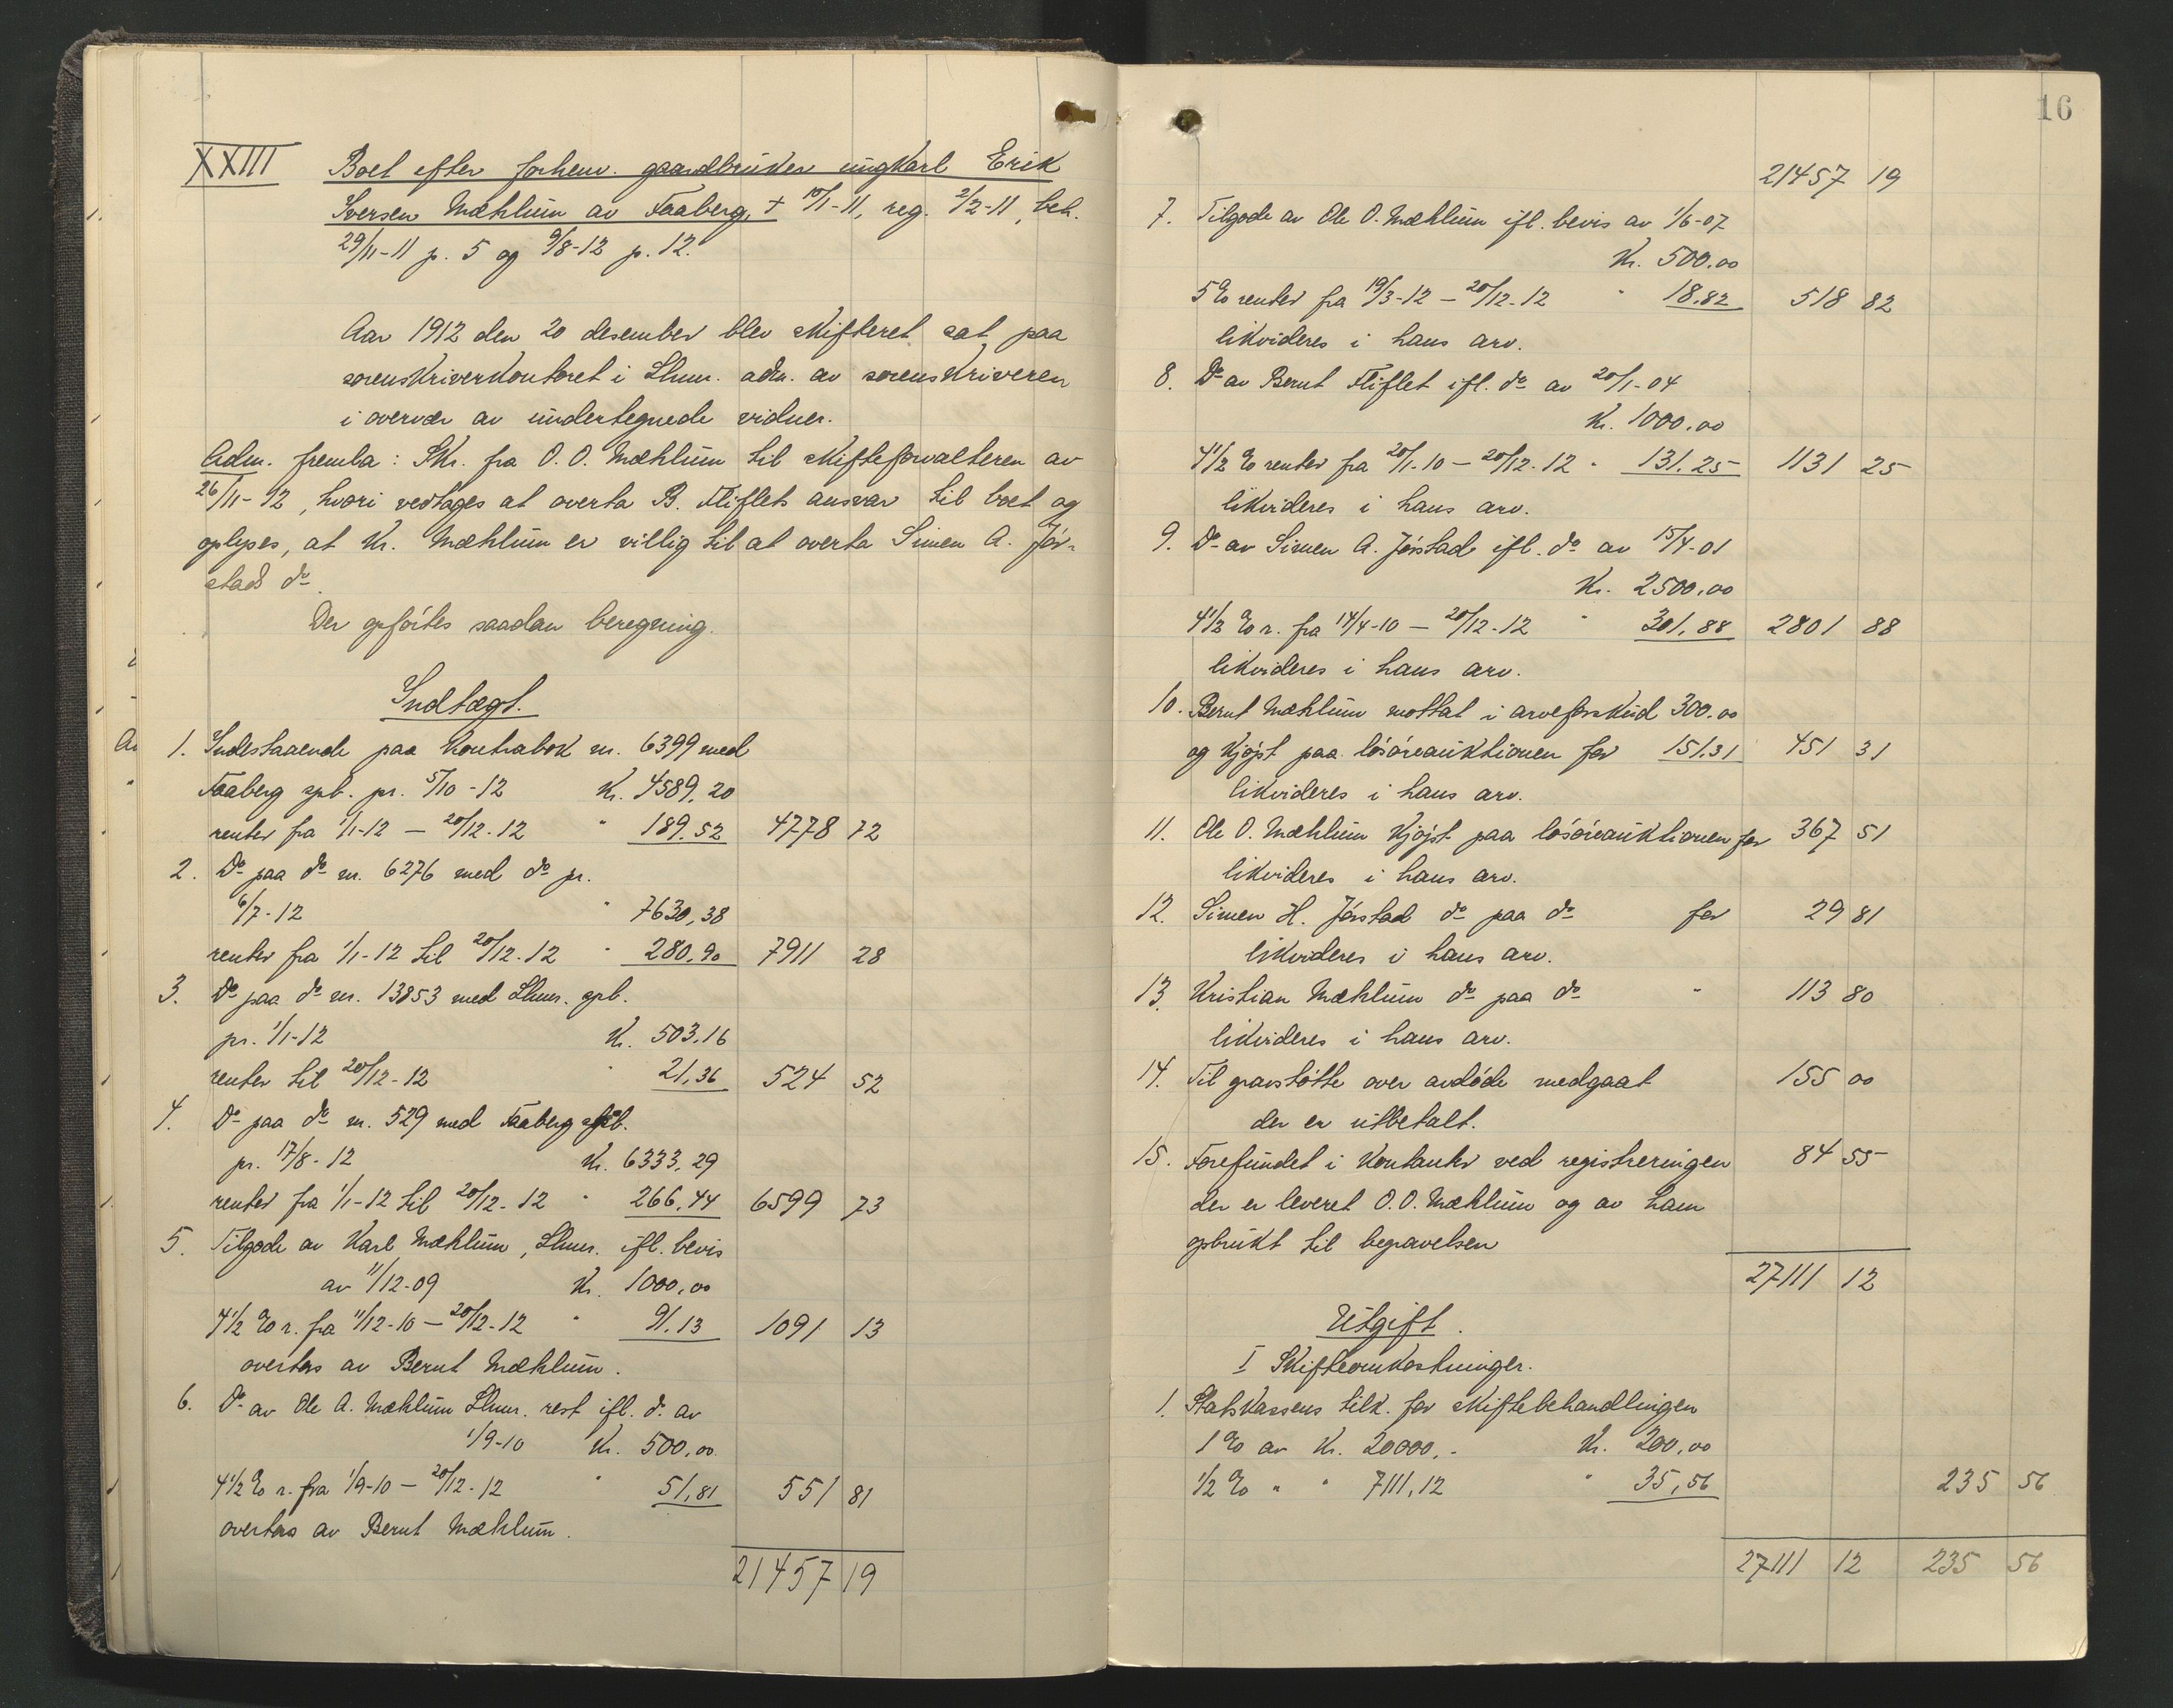 XXIII Boet efter forhenv. gaardbruker ungkarl Erik
Iversen Mæhlum av Faaberg, + 10/1-11, reg. 2/2-11, beh.
29/11-11 p. 5 og 9/8-12 p. 12.
Aar 1912 den 20 desember blev skifteret sat paa
sorenskriverkontoret i Lhmr. adm. av sorenskriveren
i overvær av undertegnede vidner.
Adm. fremla: Skr. fra O. O. Mæhlum til skifteforvalteren av
26/11-12, hvori vedtages at overta B. Fliflets ansvar til boet og
oplyses, at Kr. Mæhlum er villig til at overta Simen A. Jör-
stads do.
Der opförtes saadan beregning.
Indtægt.
1. Indestaaende paa Kontrabok nr. 6399 med
Faaberg spb. pr. 5/10-12 Kr. 4589,20
renter fra 1/1-12 — 20/12-12 " 189.52 4778 72
2. Do paa do nr. 6276 med do pr.
6/7-12 " 7630,38
renter fra 1/1-12 til 20/12-12 " 280,90 7911 28
3. Do paa do nr. 13853 med Lhmr. spb.
pr. 1/1-12 Kr. 503.16
renter til 20/12-12 " 21,36 524 52
4. Do paa do nr. 529 med Faaberg spb.
pr. 17/8-12 Kr. 6333,29
renter fra 1/1-12 til 20/12-12 " 266,44 6599 73
5. Tilgode av Karl Mæhlum, Lhmr. ifl. bevis
av 11/12-09 Kr. 1000,00
4 1/2 % r. fra 11/12-10 — 20/12-12 " 91.13 1091 13
overtas av Bernt Mæhlum.
6. Do av Ole A. Mæhlum Lhmr. rest ifl. do av
1/9-10 Kr. 500,00
4 1/2 % r. fra 1/9-10 — 20/12-12 " 51,81 551 81
overtas av Bernt Mæhlum.
21457 19
16
21457 19
7. Tilgode av Ole O. Mæhlum ifl. bevis av 1/6-07
Kr. 500,00
5 % renter fra 19/3-12 — 20/12-12 " 18,82 518 82
likvideres i hans arv.
8. Do av Bernt Fliflet ifl. do av 20/1-04
Kr. 1000,00
4 1/2 % renter fra 20/1-10 — 20/12-12 " 131,25 1131 25
likvideres i hans arv.
9. Do av Simen A. Jörstad ifl. do av 15/4-01
Kr. 2500,00
4 1/2 % r. fra 14/4-10 — 20/12-12 " 301,88 2801 88
likvideres i hans arv.
10. Bernt Mæhlum mottat i arveforskud 300.00
og kjöpt paa lösöreauktionen for 151.31 451 31
likvideres i hans arv.
11. Ole O. Mæhlum kjöpt paa lösöreauktionen for 367 51
likvideres i hans arv.
12. Simen H. Jörstad do paa do for 29 81
likvideres i hans arv.
13. Kristian Mæhlum do paa do " 113 80
likvideres i hans arv.
14. Til gravstötte over avdöde medgaat 155 00
der er utbetalt.
15. Forefundet i kontanter ved registreringen 84 55
der er leveret O. O. Mæhlum og av ham
opbrukt til begravelsen
27111 12
Utgift.
I Skifteomkostninger.
1. Statskassens tilk. for skiftebehandlingen
1 % av Kr. 20000,- Kr. 200,00
1/2 % " " 7111,12 " 35,56 235 56
27111 12 235 56